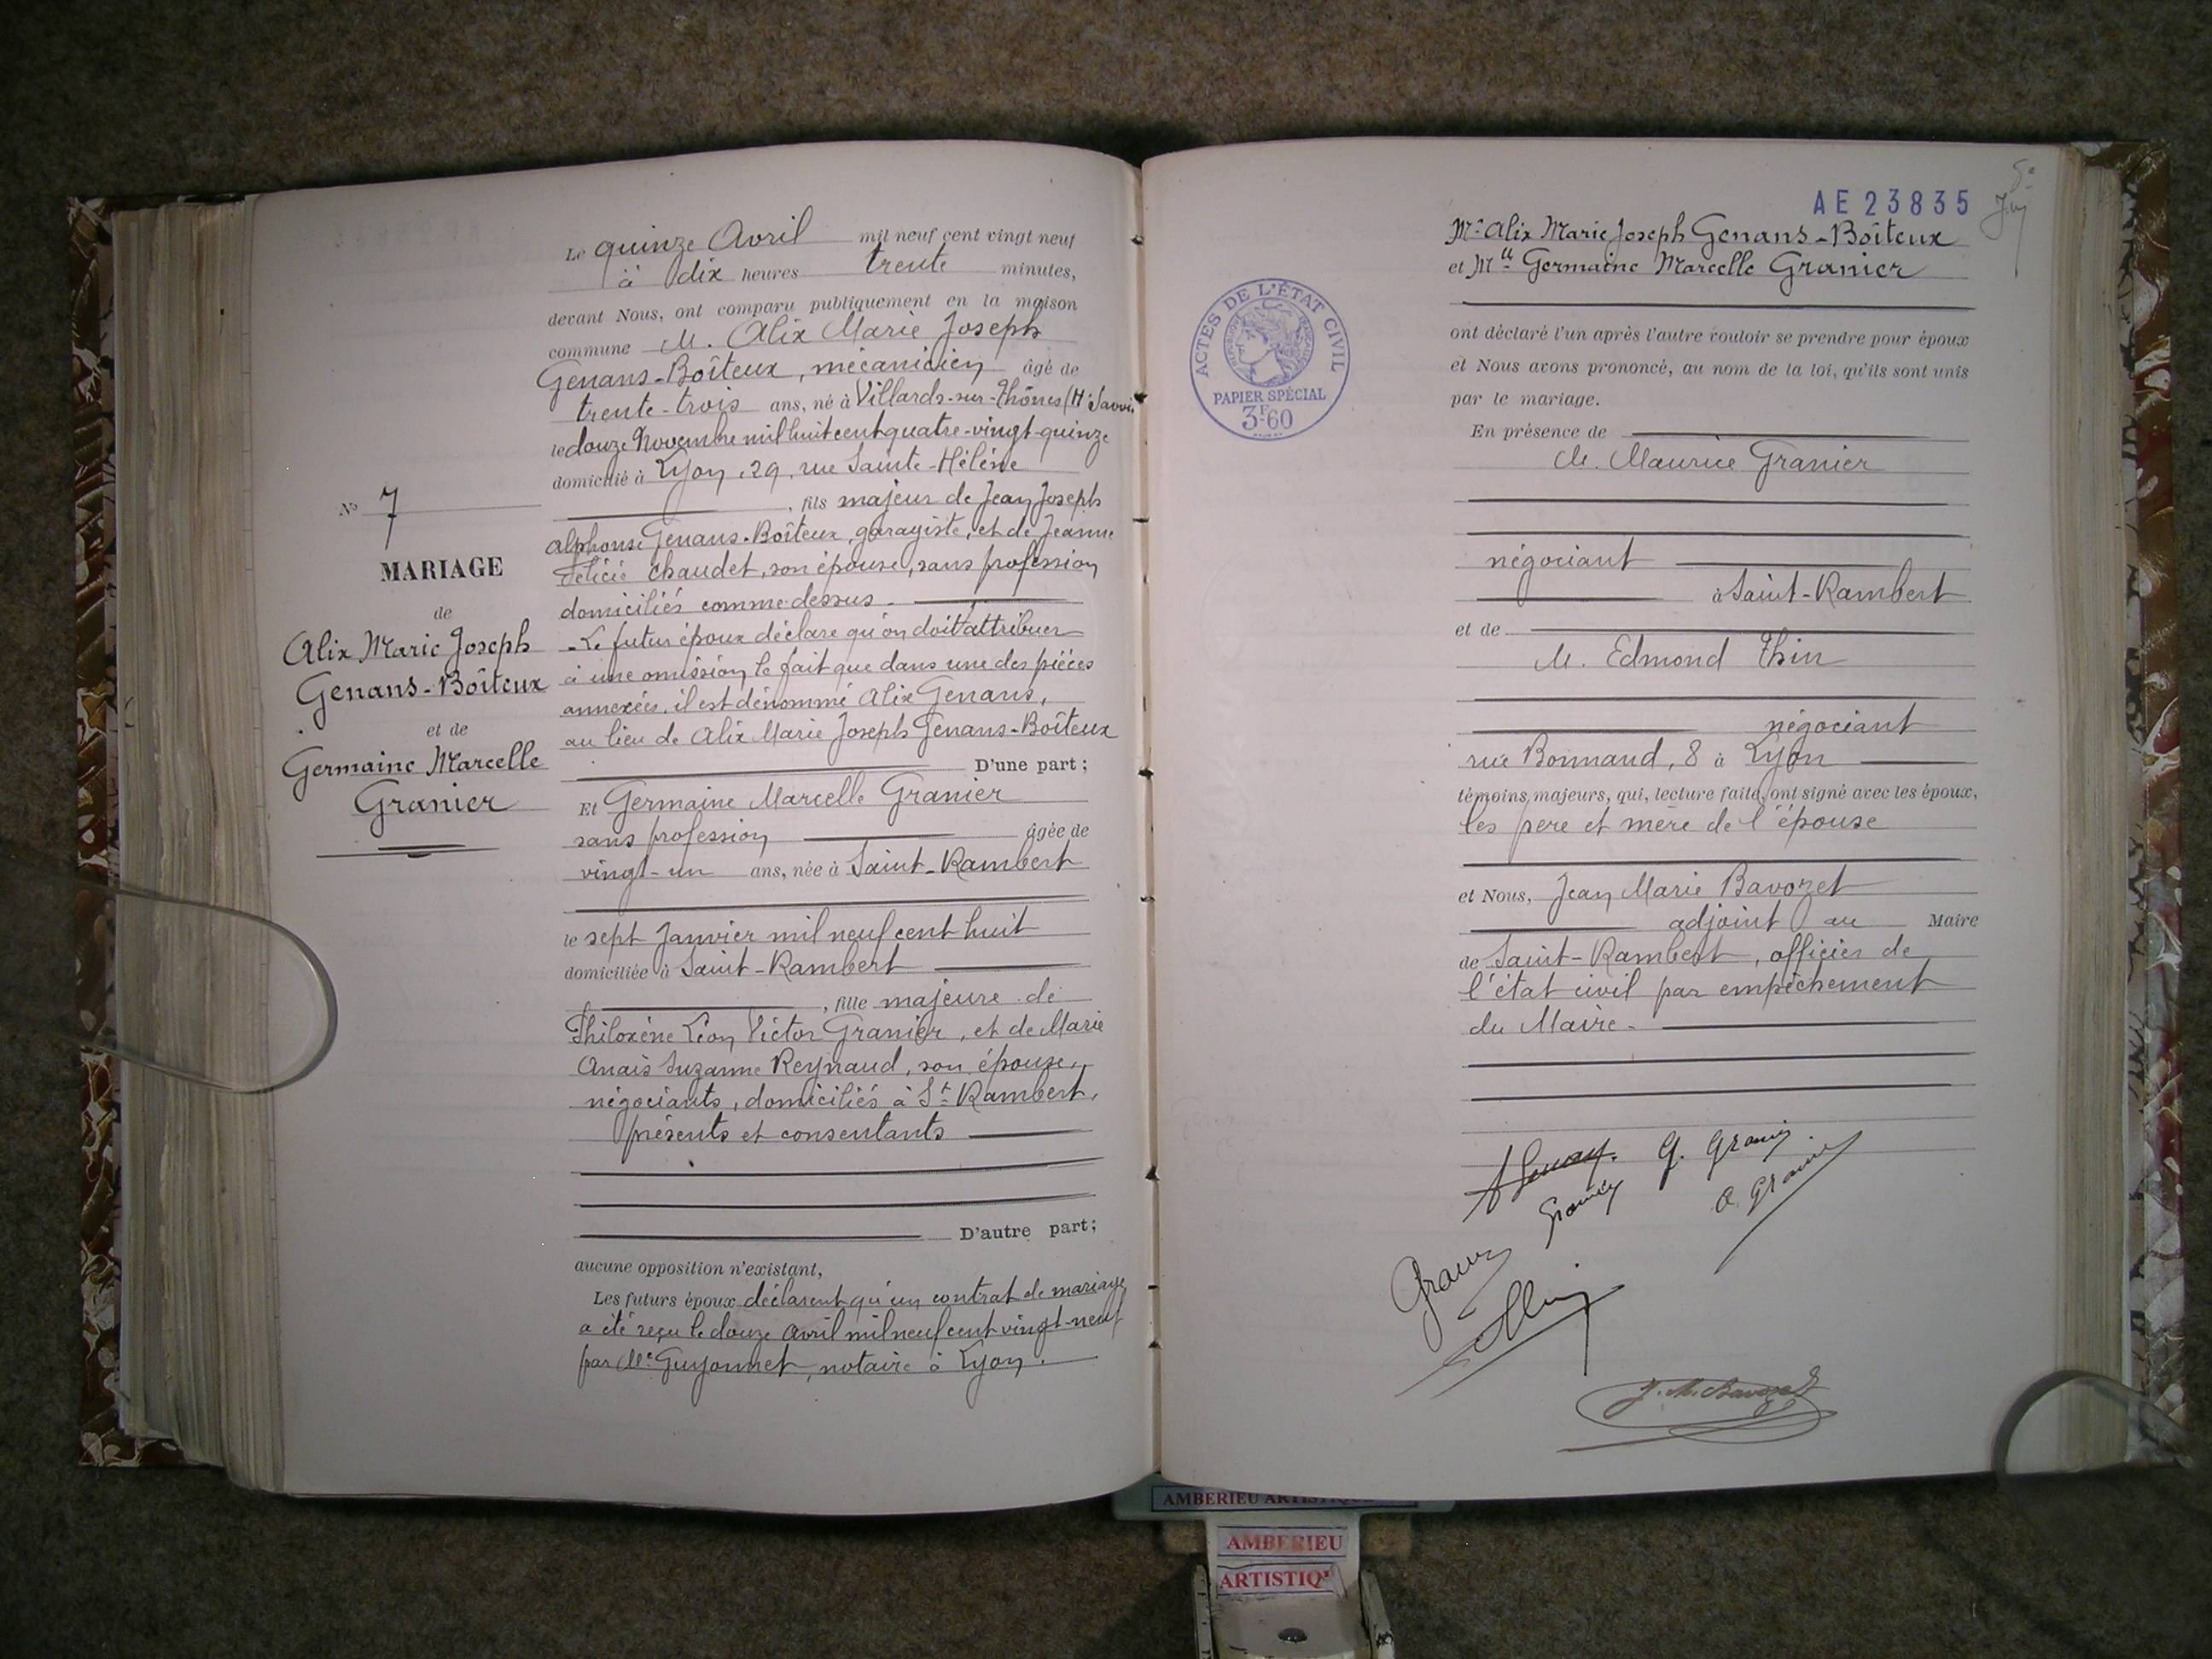 Le quinze Avril mil neuf cent vingt neuf
à dix heures trente minutes,
devant Nous, ont comparu publiquement en la maison
commune M. Alix Marie Joseph
Genans-Boîteux, mécanicien âgé de
trente-trois ans, né à Villards-sur-Thônes (Hte Savoie
le douze Novembre mil huit cent quatre-vingt-quinze
domicilié à Lyon, 29, rue Sainte-Hélène
, fils majeur de Jean Joseph
Alphonse Genans-Boîteux, garagiste, et de Jeanne
Félicie Chaudet, son épouse, sans profession
domiciliés comme dessus.
- Le futur époux déclare qu'on doit attribuer
à une omission le fait que dans une des pièces
annexées, il est dénommé Alix Genans,
au lieu de Alix Marie Joseph Genans-Boîteux
D'une part;
Et Germaine Marcelle Granier
sans profession âgée de
vingt-un ans, née à Saint-Rambert
le sept Janvier mil neuf cent huit
domiciliée à Saint-Rambert
, fille majeure de
Philoxène Léon Victor Granier, et de Marie
Anaïs Suzanne Reynaud, son épouse,
négociants, domiciliés à St Rambert,
présents et consentants
D'autre part;
aucune opposition n'existant,
Les futurs époux déclarent qu'un contrat de mariage
a été reçu le douze Avril mil neuf cent vingt-neuf
par Me Guyonnet, notaire à Lyon.
No 7
MARIAGE
de
Alix Marie Joseph
Genans-Boîteux
et de
Germaine Marcelle
Granier
AE 23835
Mr Alix Marie Joseph Genans-Boîteux
et Mlle Germaine Marcelle Granier
ont déclaré l'un après l'autre vouloir se prendre pour époux
et Nous avons prononcé, au nom de la loi, qu'ils sont unis
par le mariage.
En présence de
M. Maurice Granier
négociant
à Saint-Rambert
et de
M. Edmond Thin
négociant
rue Bonnand, 8 à Lyon
témoins majeurs, qui, lecture faite, ont signé avec les époux,
les père et mère de l'épouse
et Nous, Jean Marie Bavozet
adjoint au Maire
de Saint-Rambert, officier de
l'état civil par empêchement
du Maire.
G. Granier
Granier
A. Granier
J. M. Bavozet
ACTES DE L'ÉTAT CIVIL
RÉPUBLIQUE FRANÇAISE
PAPIER SPÉCIAL
3F60
AMBERIEU ARTISTIQUE
AMBERIEU
ARTISTIQ